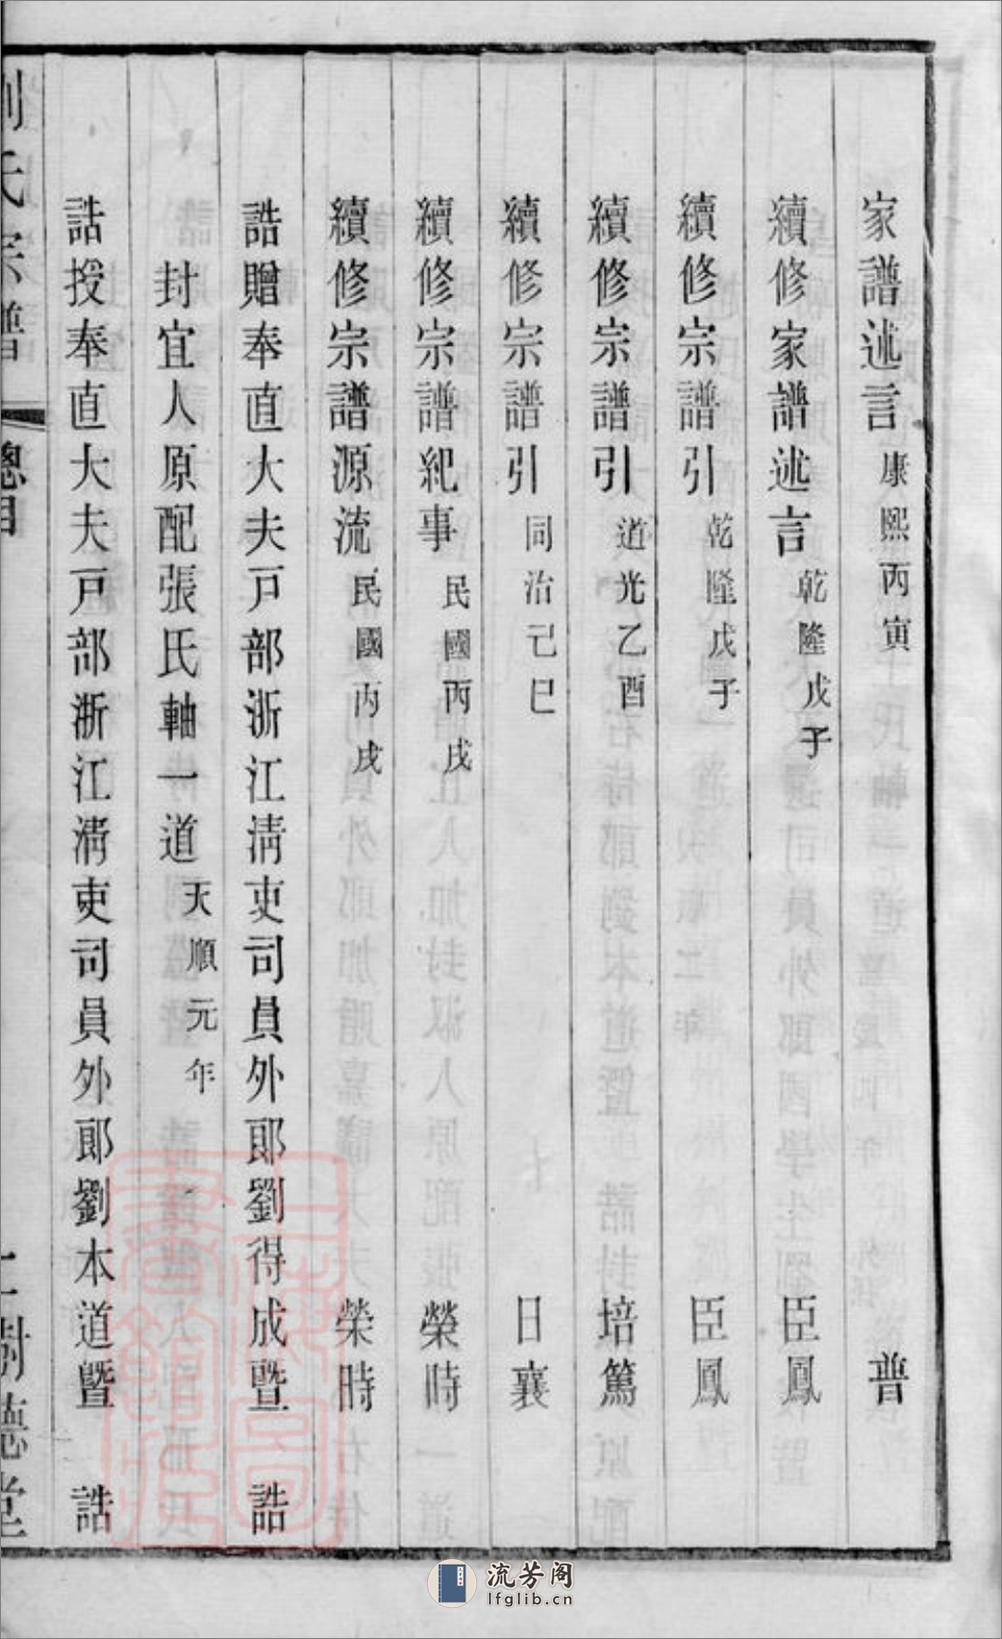 家譜述言 康熙丙寅 普
續修家譜述言 乾隆戊子 臣鳳
續修宗譜引 乾隆戊子 臣鳳
續修宗譜引 道光乙酉 培篤
續修宗譜引 同治己巳 日襄
續修宗譜紀事 民國丙戌 榮時
續修宗譜源流 民國丙戌 榮時
誥贈奉直大夫戶部浙江清吏司員外郎劉得成暨 誥
封宜人原配張氏軸一道 天順元年
誥授奉直大夫戶部浙江淸吏司員外郎劉本道暨 誥
劉氏宗譜 總目 樹德堂
流芳阁
lfglib.cn